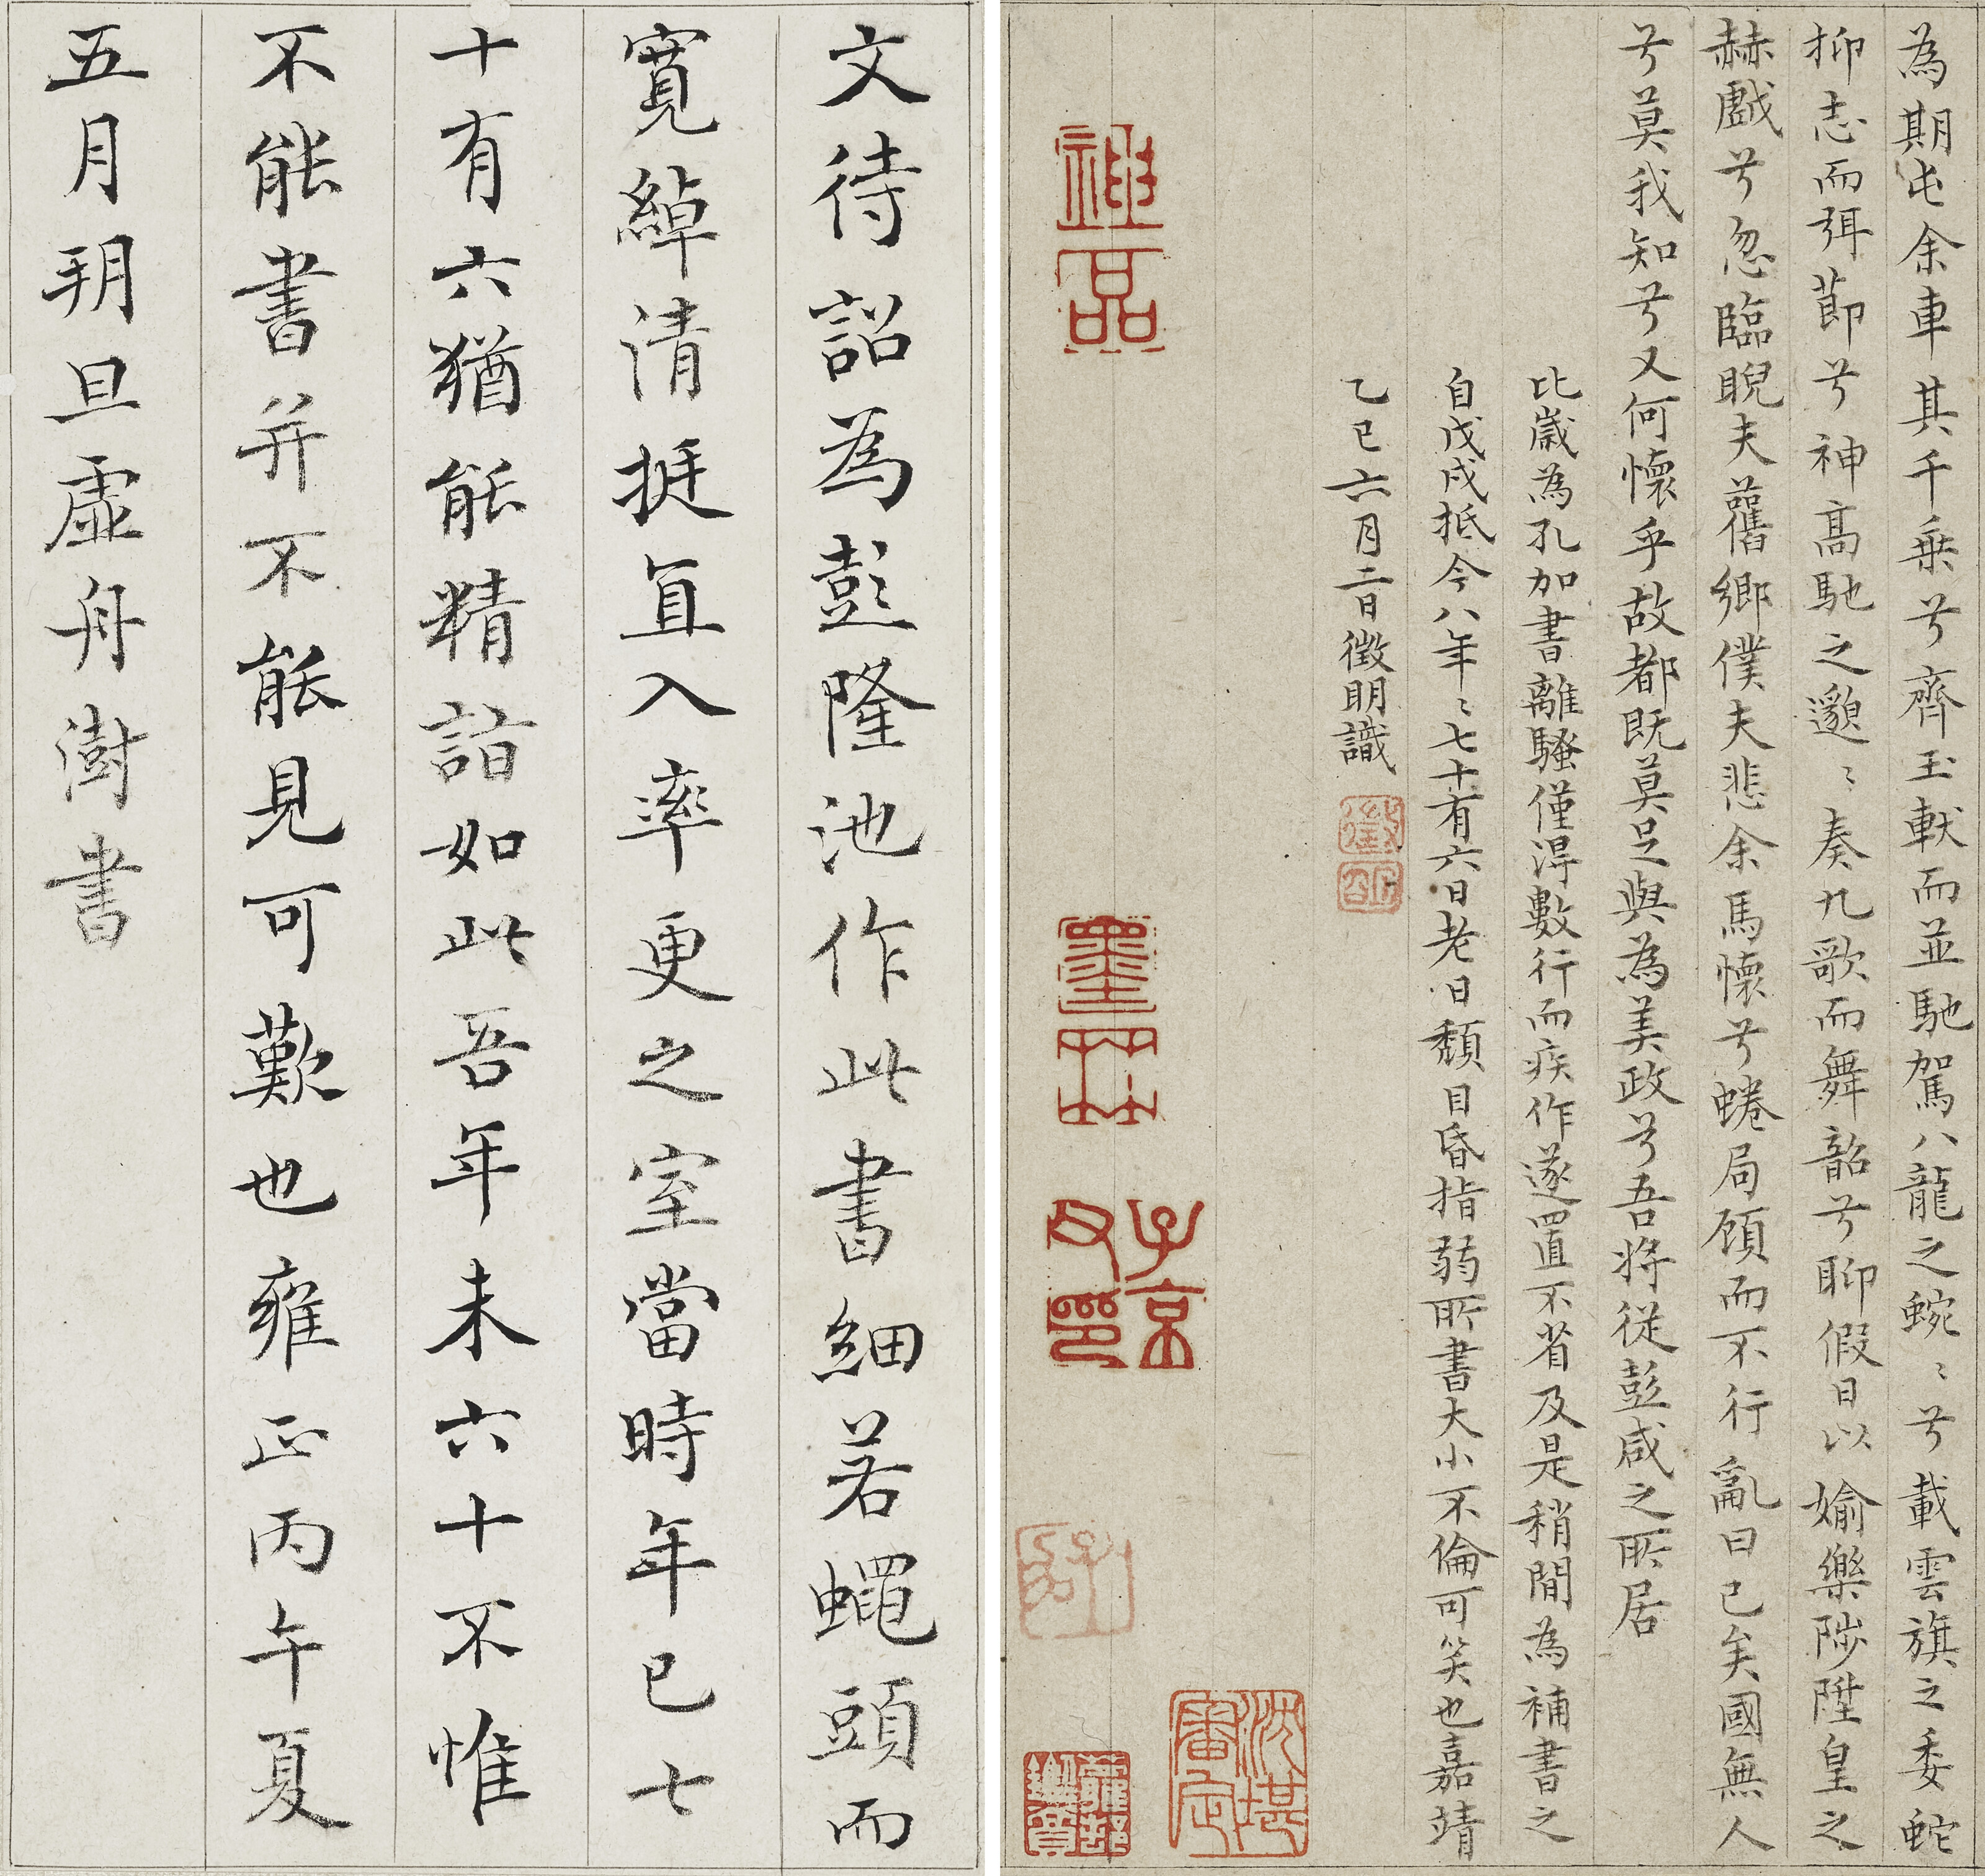 為期屯余車其千乗兮齊玉軑而並馳駕八龍之蜿〻兮載雲旗之委蛇
抑志而弭節兮神髙馳之邈〻奏九歌而舞韶兮聊假日以婾樂陟陞皇之
赫戯兮忽臨睨夫舊鄉僕夫悲余馬懷兮蜷局顧而不行亂曰已矣國無人
兮莫我知兮又何懷乎故都既莫足與為美政兮吾將從彭咸之所居
比嵗為孔加書離騷僅淂數行而疾作遂置不省及是稍間為補書之
自戊戌抵今八年〻七十有六日老日頹目昏指弱所書大小不倫可笑也嘉靖
乙巳六月二日徵明識
徵明
墨林
子京父印
文待詔為彭隆池作此書細若蠅頭而
寬綽清挺直入率更之室當時年已七
十有六猶能精詣如此吾年未六十不惟
不能書并不能見可歎也雍正丙午夏
五月玥旦虛舟澍書